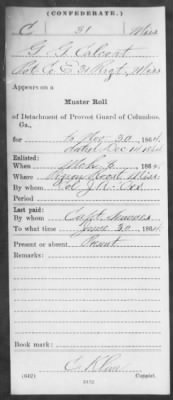 (CONFEDERATE.)
C 31 Miss
G. G. Calcoat
Co. 31 Regt. Miss
Appears on a
Muster Roll
of Detachment of Provost Guard of Columbus,
Ga.,
for to Nov 30, 1864.
dated Dec 1864
Enlisted:
When Mch 6, 186
Where Miss.
By whom Col J. R.
Period
Last paid:
By whom Capt
To what time June 30, 1864
Present or absent Present
Remarks:
Book mark:
(642) Copyist.